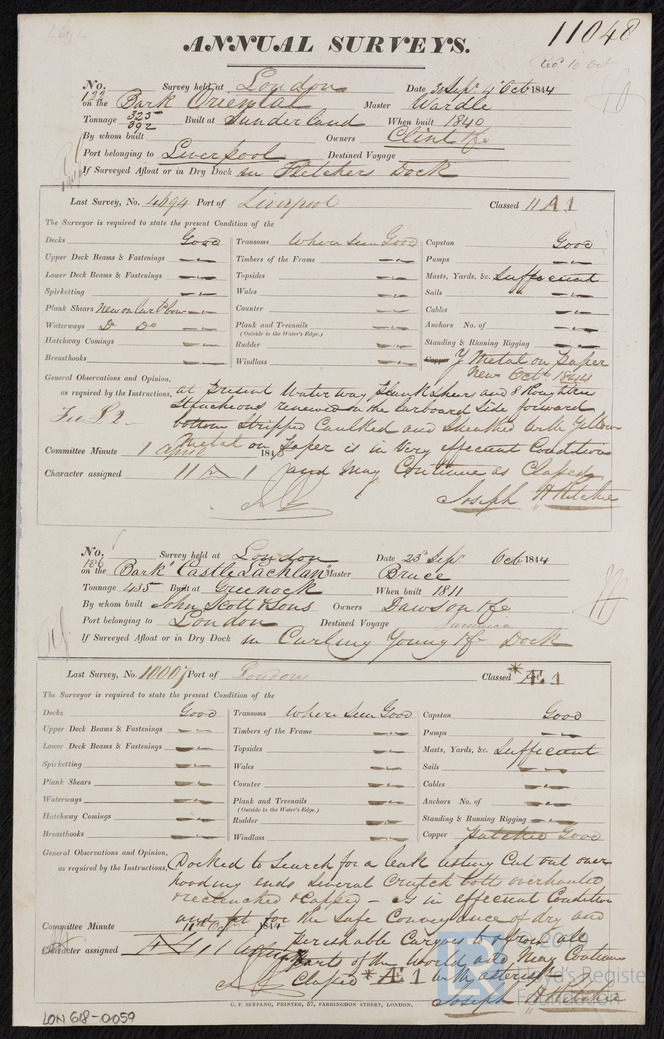 11048
ANNUAL SURVEYS.
No. 122 Survey held at London Date 30 Sept 4 Oct 1844
on the Bark Oriental Master Wardle
Tonnage 325 392 Built at Sunderland When built 1840
By whom built Owners Clint & Co
Port belonging to Liverpool Destined Voyage
If Surveyed Afloat or in Dry Dock in Fletchers Dock
Last Survey, No. 4494 Port of Liverpool Classed 11 A 1
The Surveyor is required to state the present Condition of the
Decks Good Transoms Where seen Good Capstan Good
Upper Deck Beams & Fastenings Timbers of the Frame Pumps
Lower Deck Beams & Fastenings Topsides Masts, Yards, &c. Sufficient
Spirketting Wales Sails
Plank Shears New on Larbd bow Counter Cables
Waterways Do Do Plank and Treenails (Outside to the Water's Edge.) Anchors No. of
Hatchway Comings Rudder Standing & Running Rigging
Breasthooks Windlass Copper Y Metal on Paper
New Octr 1844
General Observations and Opinion, at present Water way Plank shears and 8 Rough tree
as required by the Instructions, Stancheons renewed on the Larboard side forward
Fee £2 bottom stripped Caulked and Sheathed with Yellow
Metal on Paper is in Very efficient Condition
Committee Minute 184
Character assigned 11 A 1 and May Continue as Classed
Joseph H Ritchie
No. 186 Survey held at London Date 25 Sept Oct 1844
on the Bark "Castle Lachlan" Master Bruce
Tonnage 435 Built at Greenock When built 1811
By whom built John Scott & Sons Owners Dawson & Co
Port belonging to London Destined Voyage Jamaica
If Surveyed Afloat or in Dry Dock in Curling Young & Co Dock
Last Survey, No. 10007 Port of London Classed *Æ 1
The Surveyor is required to state the present Condition of the
Decks Good Transoms Where seen Good Capstan Good
Upper Deck Beams & Fastenings Timbers of the Frame Pumps
Lower Deck Beams & Fastenings Topsides Masts, Yards, &c. Sufficient
Spirketting Wales Sails
Plank Shears Counter Cables
Waterways Plank and Treenails (Outside to the Water's Edge.) Anchors No. of
Hatchway Comings Rudder Standing & Running Rigging
Breasthooks Windlass Copper Patched Good
General Observations and Opinion, Docked to Search for a leak
as required by the Instructions, hooding ends Several Crutch bolts overhauled
& reclenched & Capped - Is in efficient Condition
and fit for the Safe Conveyance of dry and
Committee Minute 1844 Perishable Cargoes to & from all
Character assigned Parts of the World and May Continue
Classed *Æ 1 with asterisk -
Joseph H Ritchie
C. F. SEYFANG, PRINTER, 57, FARRINGDON STREET, LONDON.
LON 618-0059
© 2020
Lloyd's Register
Foundation